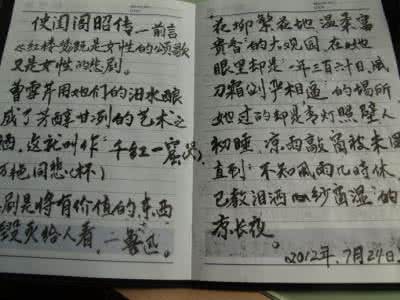 使闺阁昭传—前言
《红楼梦》既是女性的颂歌
又是女性的悲剧。
曹雪芹用她们的泪水酿
成了芳醇甘冽的艺术之
酒，这就叫作"千红一窟（哭）、
万艳同悲（杯）
剧是将有价值的东西
毁灭给人看，—鲁迅。
在那繁花地温柔富
贵香的大观园，在她
眼里却是"一年三百六十日，风
刀霜剑严相逼"的场所，
她过的却是青灯照壁人
初睡，凉雨敲窗被未温
直到"不知风雨几时休，
已教泪洒窗纱湿"的
凉长夜。
2012年.7月27日.